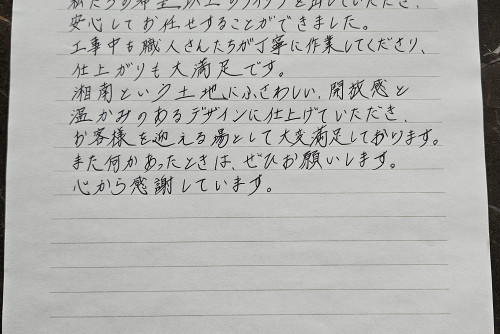 私たちの希望以上のアイデアを出していただき、
安心してお任せすることができました。
工事中も職人さんたちが丁寧に作業してくださり、
仕上がりも大満足です。
湘南という土地にふさわしい、開放感と
温かみのあるデザインに仕上げていただき、
お客様を迎える場として大変満足しております。
また何かあったときは、ぜひお願いします。
心から感謝しています。